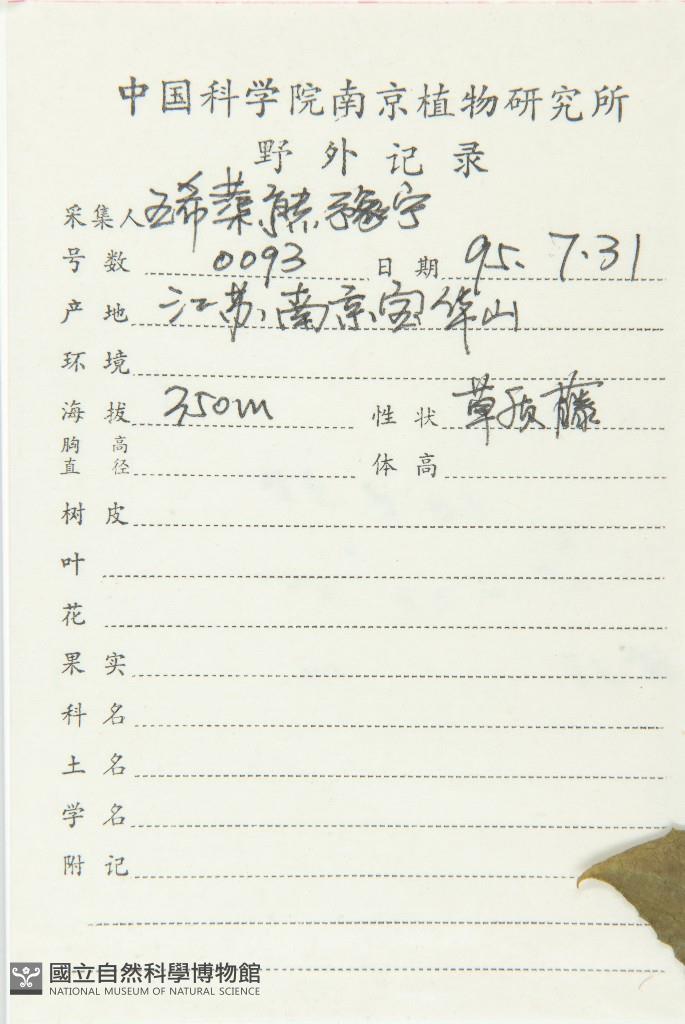 中国科学院南京植物研究所
野外记录
采集人 王希蕖 熊豫宁
号数 0093 日期 95. 7.31
产地 江苏南京宝华山
环境
海拔 350m 性状 草质藤
胸高直径 体高
树皮
叶
花
果实
科名
土名
学名
附记
國立自然科學博物館
NATIONAL MUSEUM OF NATURAL SCIENCE